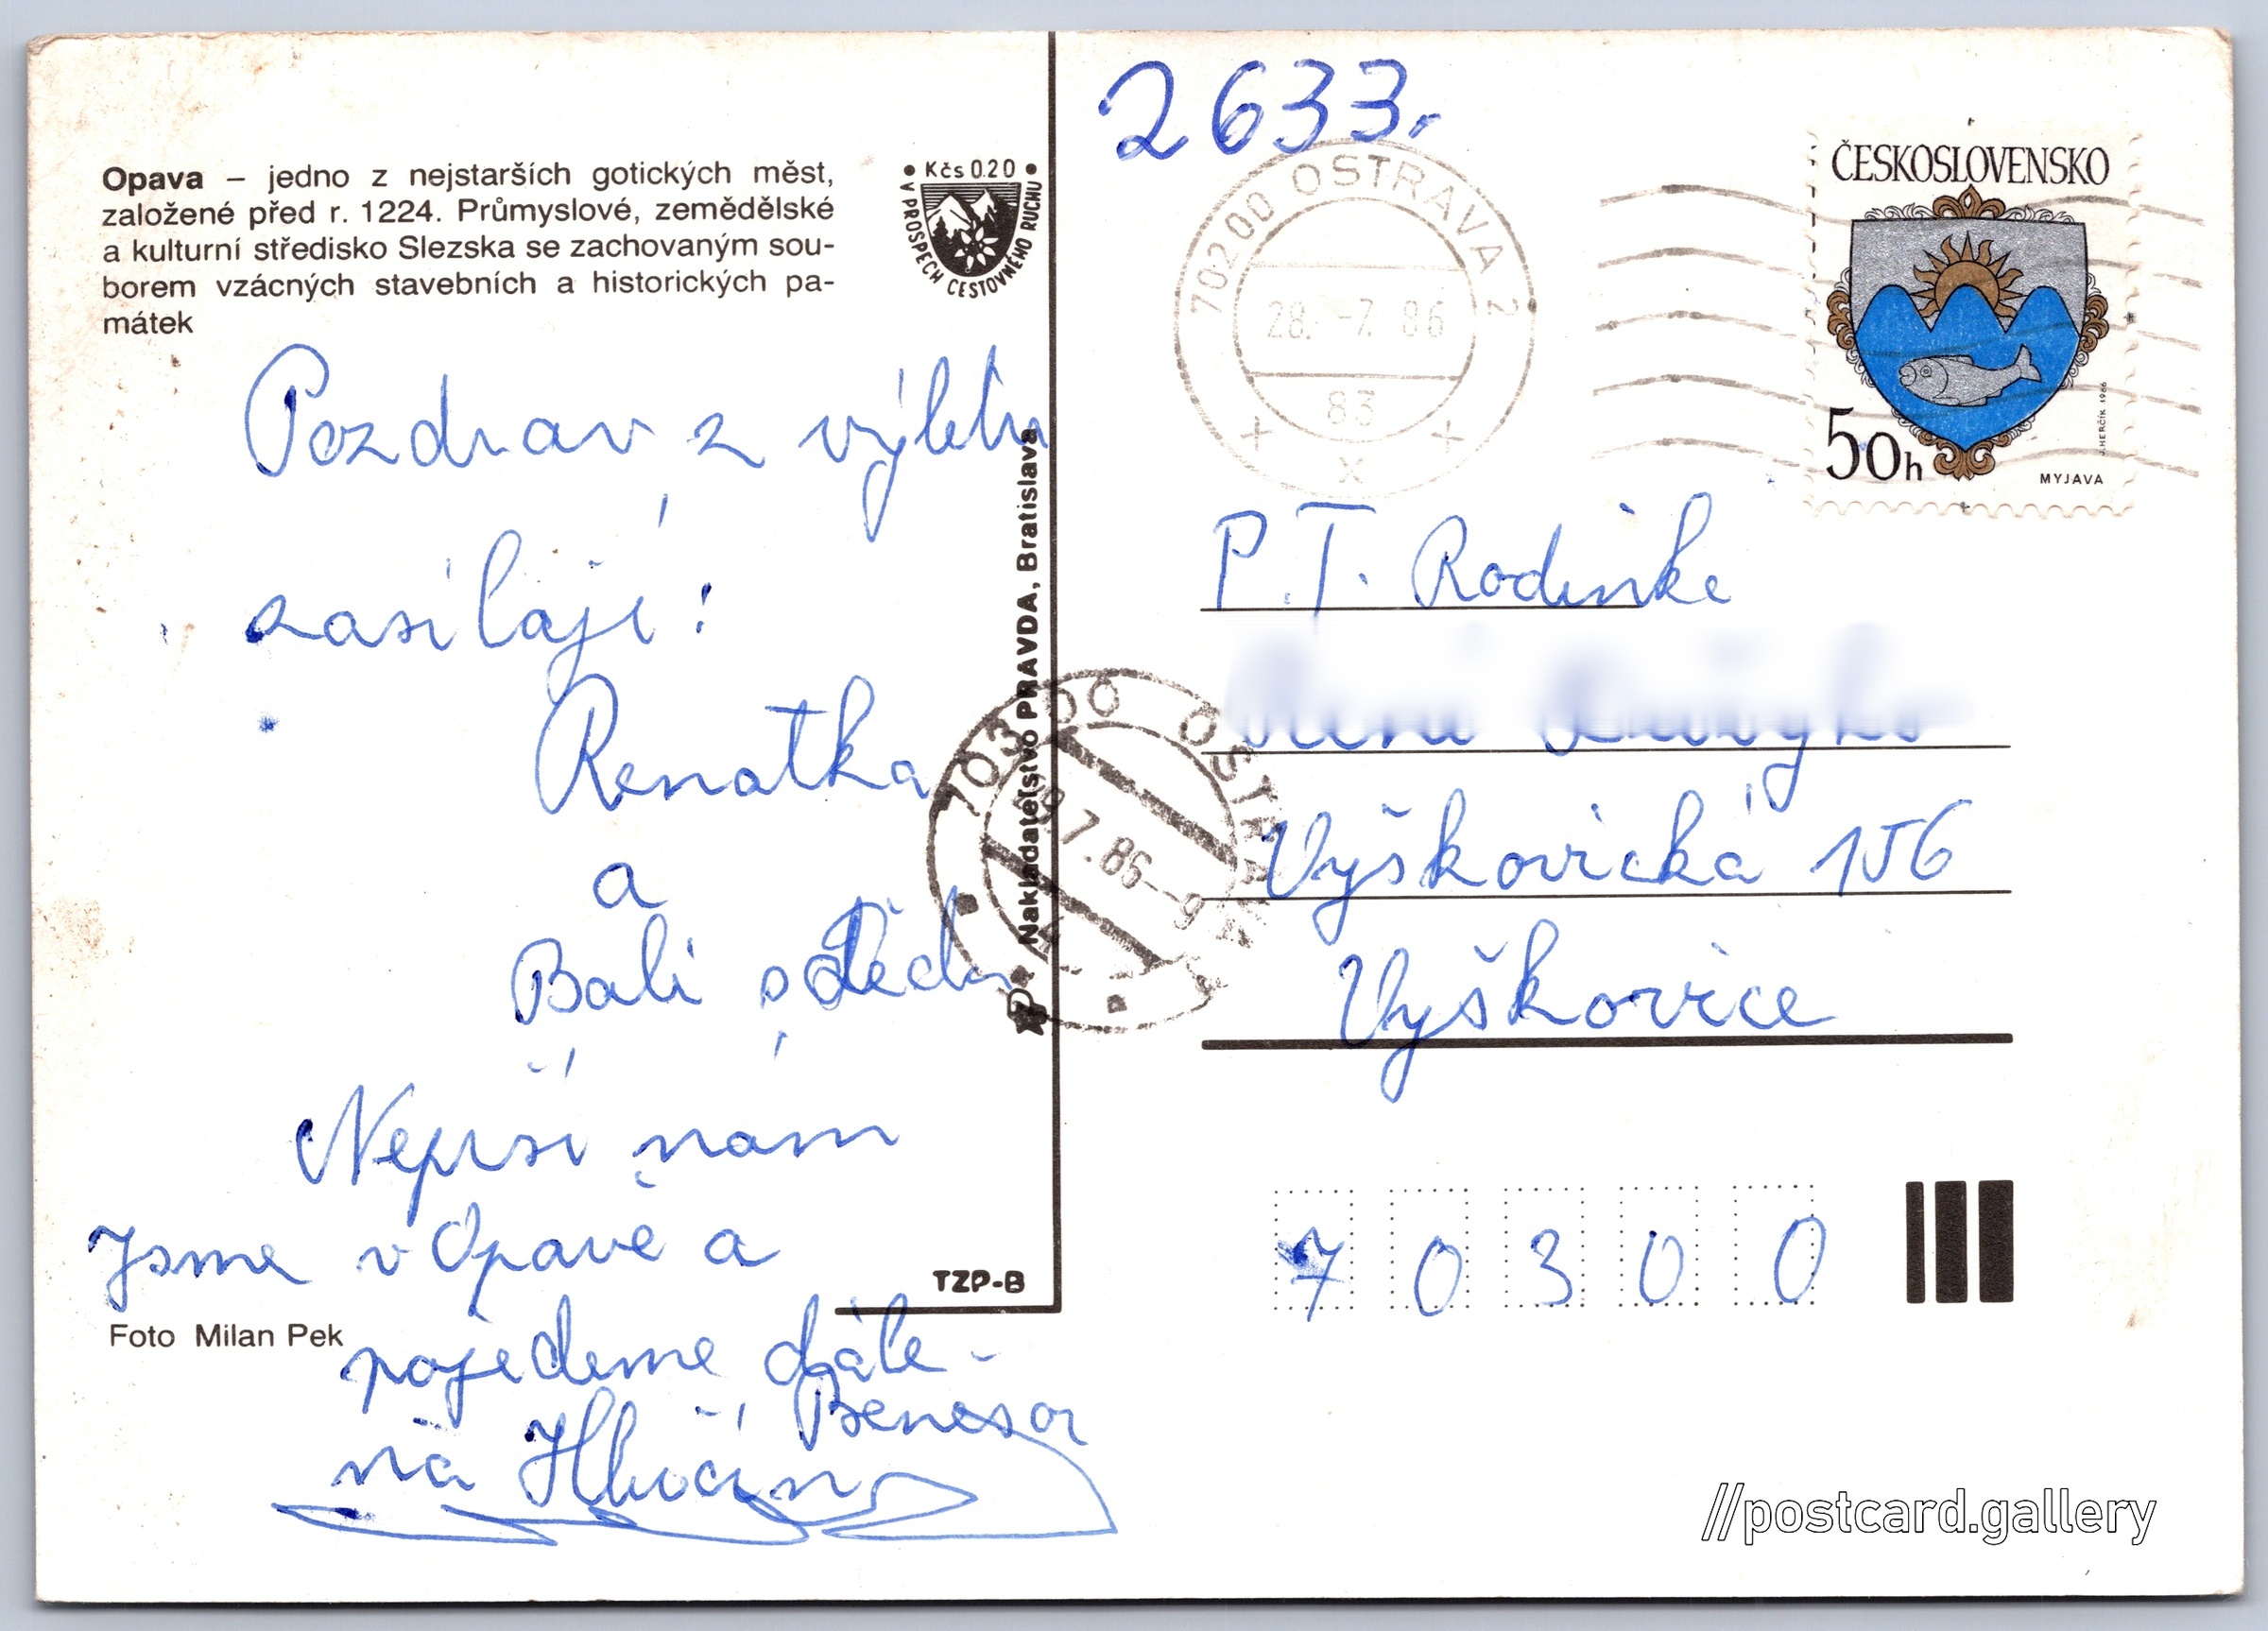 Opava – jedno z nejstarších gotických měst,
založené před r. 1224. Průmyslové, zemědělské
a kulturní středisko Slezska se zachovaným sou-
borem vzácných stavebních a historických pa-
mátek
• Kčs 0.20 •
V PROSPĚCH CESTOVNÉHO RUCHU
Pozdrav z výletu
zasílají:
Renatka
a
Bali s
Neprší nám
Jsme v Opavě a
pojedeme dále -
Benešov
na Hlučín
Foto Milan Pek
TZP-B
Nakladatelstvo PRAVDA, Bratislava
2633.
702 00 OSTRAVA 2
28. -7. 86
83
x x x
ČESKOSLOVENSKO
50h
J. HERČÍK 1986
MYJAVA
703 00 OSTRAVA
7.86-9
P.T. Rodinka
Vyškovická 156
Vyškovice
70300
//postcard.gallery